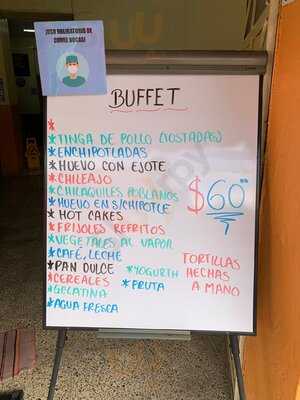 ¡USO OBLIGATORIO DE
CUBRE BOCAS!
BUFFET
*
* TINGA DE POLLO (TOSTADAS)
* ENCHIPOTLADAS
* HUEVO CON EJOTE
* CHILEAJO
* CHILAQUILES POBLANOS
* HUEVO EN S/CHIPOTLE
* HOT CAKES
* FRIJOLES REFRITOS
* VEGETALES AL VAPOR
* CAFÉ, LECHE
* PAN DULCE
* CEREALES
* GELATINA
* AGUA FRESCA
* YOGURTH
* FRUTA
$60
TORTILLAS
HECHAS
A MANO